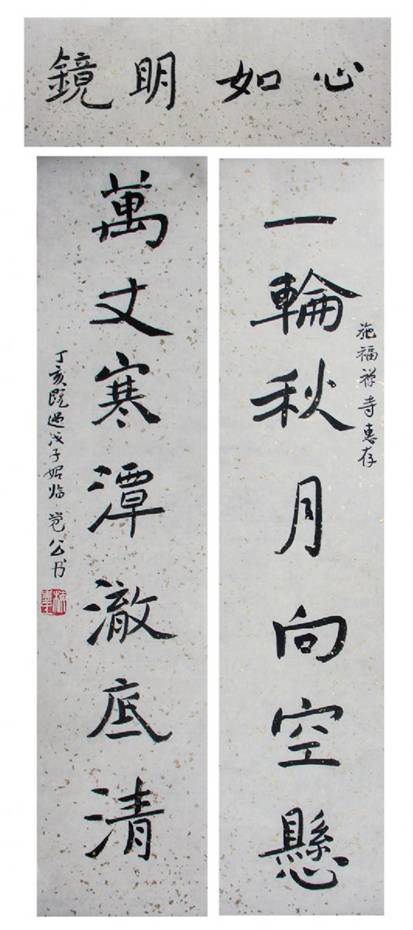 心如明鏡
一輪秋月向空懸
施福禅寺惠存
萬丈寒潭澈底清
丁亥既過戊子始臨
公书